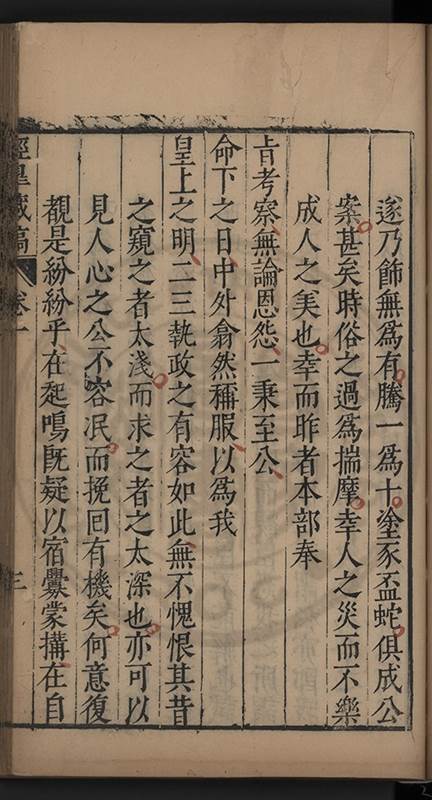 遂乃飾無為有騰一為十塗豕盃蛇俱成公
案甚矣時俗之過為揣摩幸人之災而不樂
成人之美也幸而昨者本部奉
旨考察無論恩怨一秉至公
命下之日中外翕然稱服以為我
皇上之明二三執政之有容如此無不愧恨其昔
之窺之者太淺而求之者之太深也亦可以
見人心之公不容泯而挽回有機矣何意復
覩是紛紛乎在起鳴既疑以宿釁蒙搆在自
涇皋藏稿 卷一 三